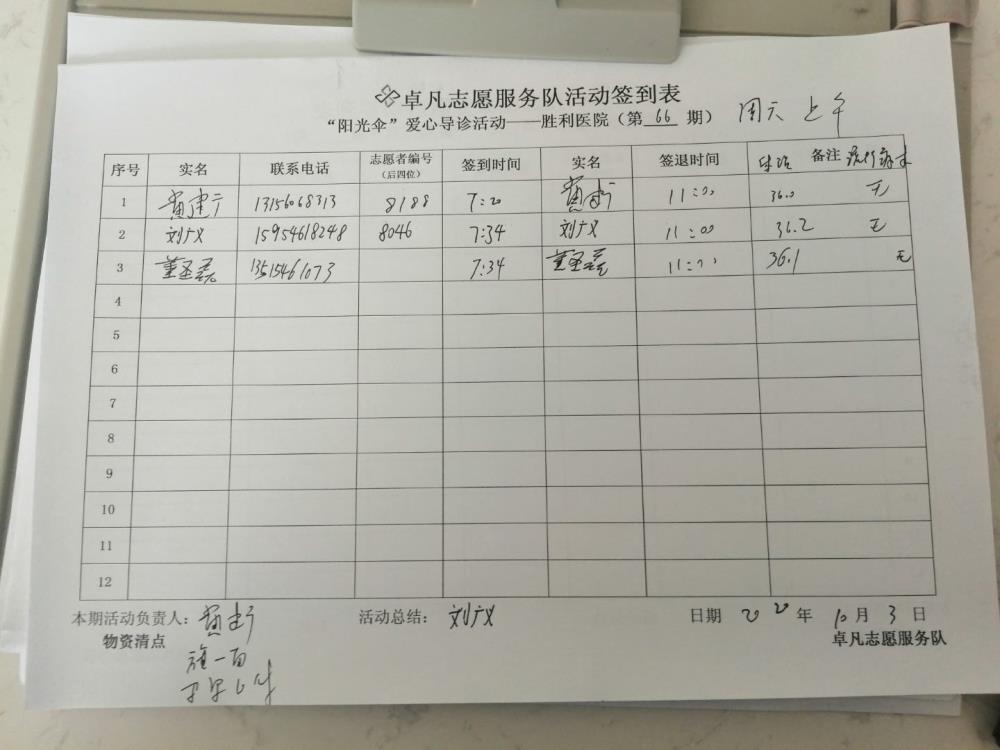 卓凡志愿服务队活动签到表
“阳光伞”爱心导诊活动——胜利医院（第 66 期） 周六 上午
序号 实名 联系电话 志愿者编号（后四位） 签到时间 实名 签退时间 体温 备注 流行病史
1 黄建宁 13156068313 8188 7:20 黄建宁 11:00 36.0 无
2 刘广义 15954618248 8046 7:34 刘广义 11:00 36.2 无
3 董圣磊 13515461073 7:34 董圣磊 11:00 36.1 无
4
5
6
7
8
9
10
11
12
本期活动负责人：黄建宁 活动总结：刘广义 日期 2020 年 10 月 3 日
物资清点 卓凡志愿服务队
旗一面